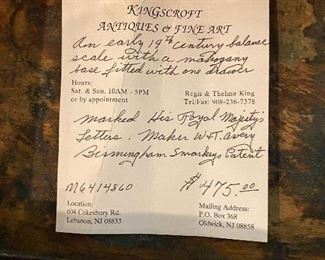 KINGSCROFT
ANTIQUES & FINE ART
An early 19th Century balance
scale with a mahogany
base fitted with one drawer
Hours:
Sat. & Sun. 10AM - 5PM
or by appointment
Regis & Thelma King
Tel/Fax: 908-236-7378
Marked His Royal Majestys
Letters. Maker W & T. Avery
Birmingham Patent
M6414860
$475.00
Location:
604 Cokesbury Rd.
Lebanon, NJ 08833
Mailing Address:
P.O. Box 368
Oldwick, NJ 08858